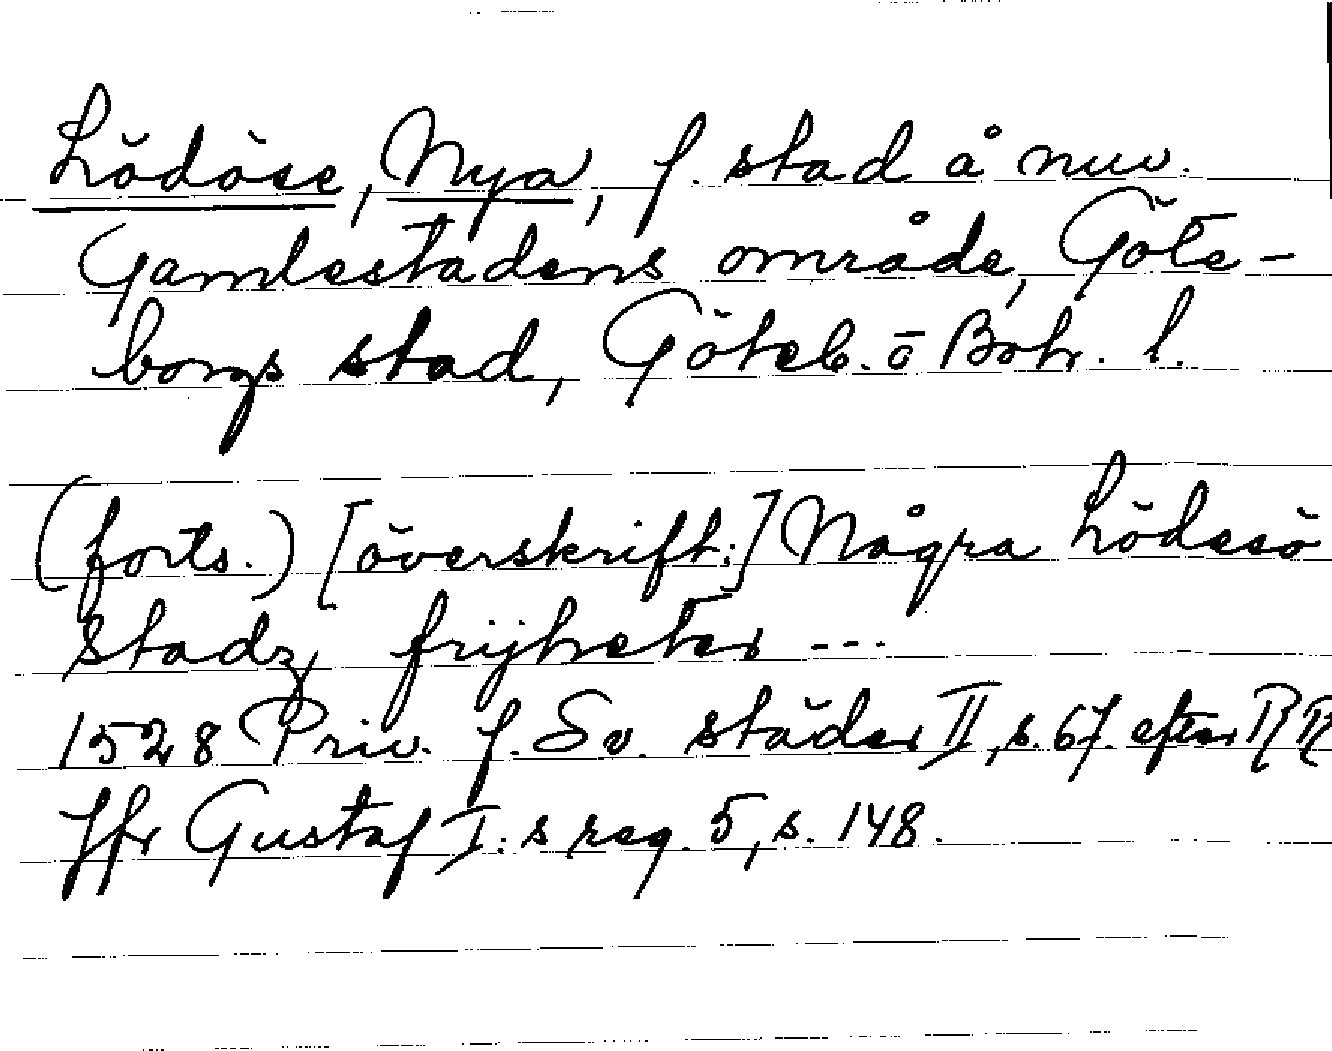 Lödöse, Nya, f. stad å nuv.
Gamlestadens område, Göte-
borgs stad, Göteb. o Boh. l.
(forts.) [överskrift:] Några Lödesö
Stadz frijheter ---
1528 Priv. f. Sv. städer II, s. 67. efter RR
Jfr Gustaf I:s reg. 5, s. 148.